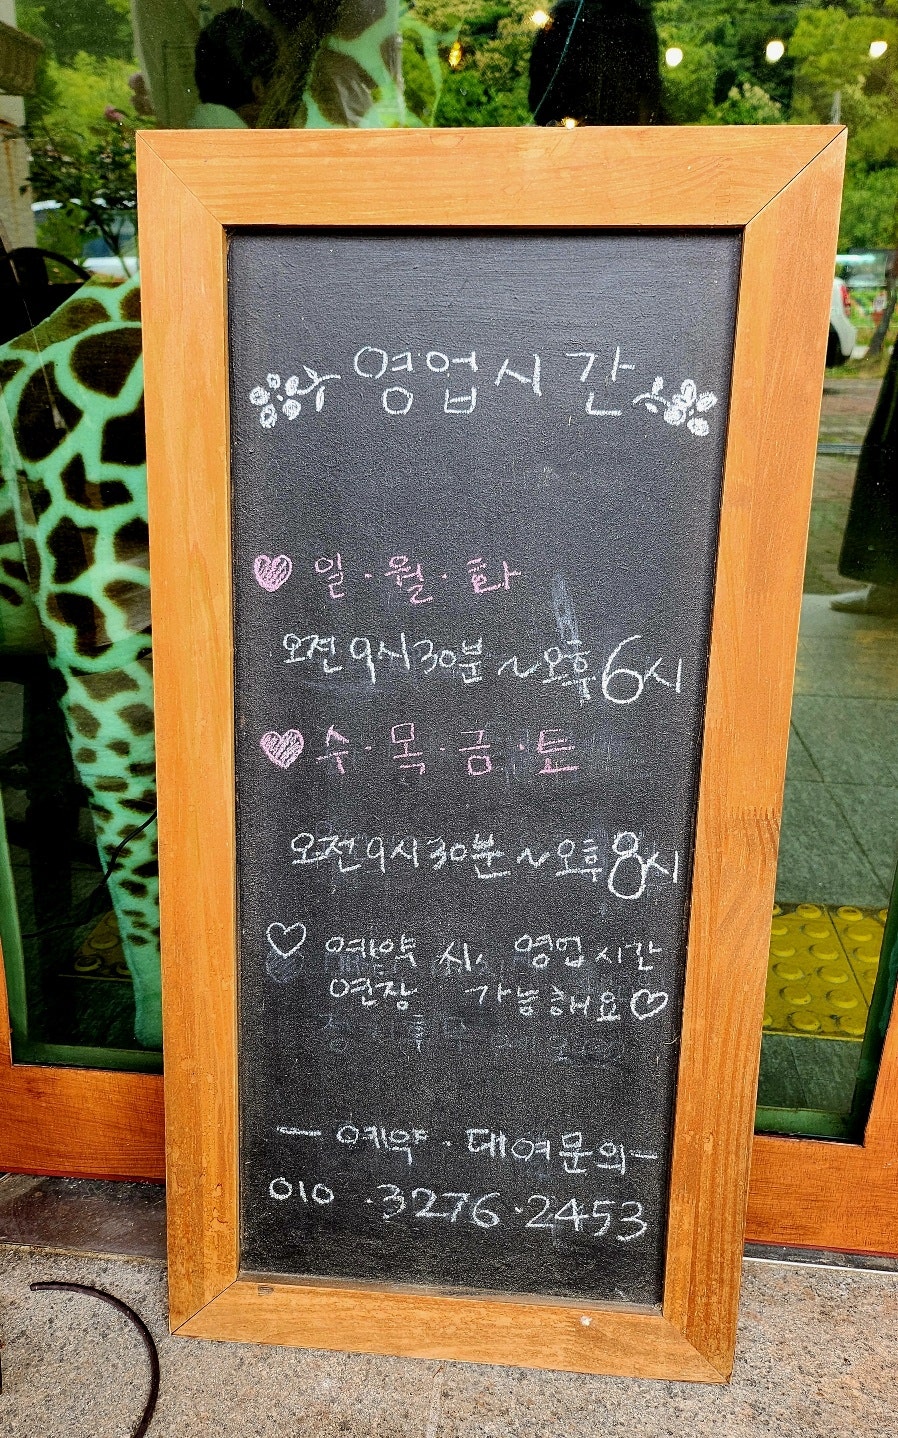 영업시간
일·월·화
오전9시30분~오후6시
수·목·금·토
오전9시30분~오후8시
예약 시, 영업시간
연장 가능해요
-예약·대여문의-
010·3276·2453